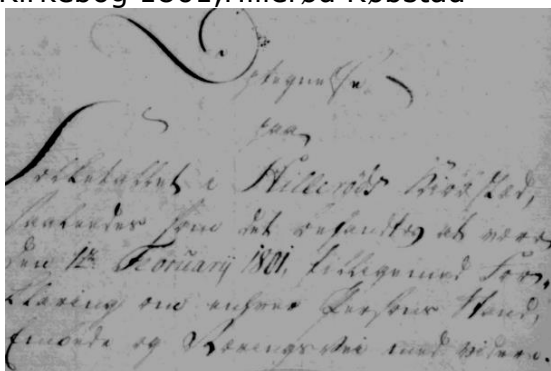 Kirkebog 1801, Hillerød Købstad
Optegnelse
paa
Folketallet i Hillerøds Kiøbstæd,
saaledes som det befandtes at være
den 1te Februarij 1801, tilligemed For-
klaring om enhver Persons Stand,
Embede og Næringsvei med videre.